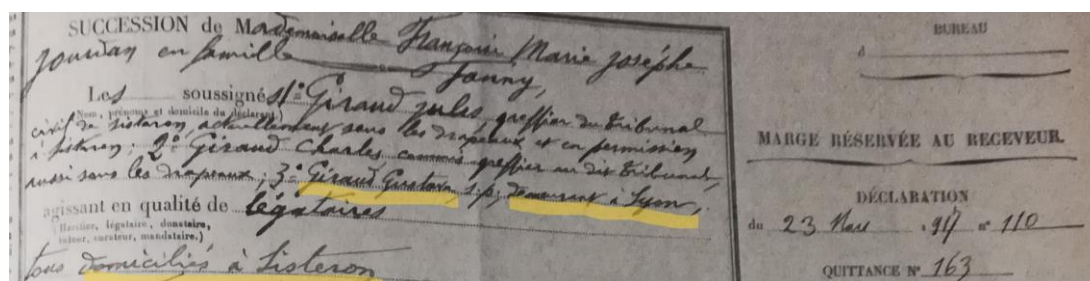 SUCCESSION de Mademoiselle Françoise Marie Josephe
Jourdan en famille Fanny,
Les soussignés 1° Giraud Jules, greffier du tribunal
(Nom, prénoms et domicile du déclarant)
civil de Sisteron, actuellement sous les drapeaux et en permission
à Sisteron; 2° Giraud Charles commis greffier au dit tribunal,
aussi sous les drapeaux; 3° Giraud Gustave, s.p. demeurant à Lyon,
agissant en qualité de légataires
(Héritier, légataire, donataire,
tuteur, curateur, mandataire.)
tous domiciliés à Sisteron
BUREAU
d
MARGE RÉSERVÉE AU RECEVEUR.
DÉCLARATION
du 23 Mars 1917 n° 110
QUITTANCE N° 163